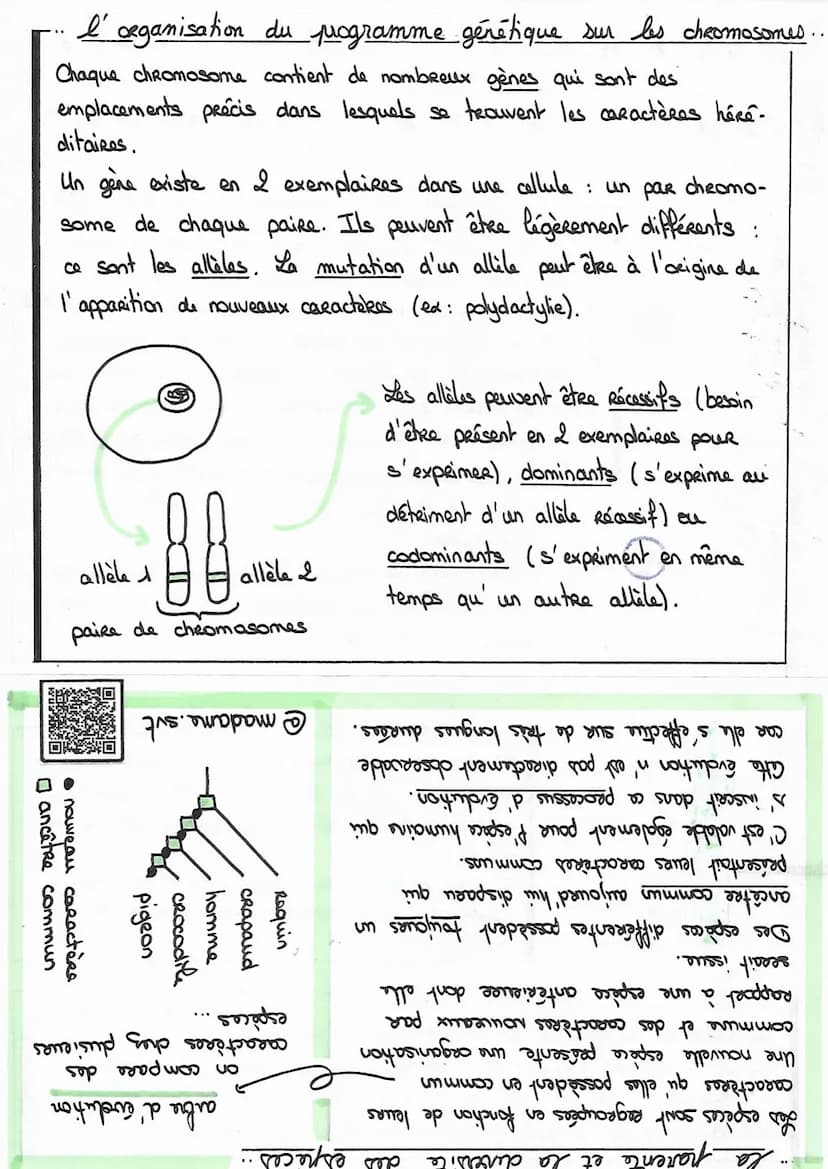 .. l'organisation du programme génétique sur les chromosomes..
Chaque chromosome contient de nombreux gènes qui sont des
emplacements précis dans lesquels se trouvent les caractères héré-
ditaires.
Un gène existe en 2 exemplaires dans une cellule : un par chromo-
some de chaque paire. Ils peuvent être légèrement différents :
ce sont les allèles. La mutation d'un allèle peut être à l'origine de
l'apparition de nouveaux caractères (ex : polydactylie).
Les allèles peuvent être récessifs (besoin
d'être présent en 2 exemplaires pour
s'exprimer), dominants (s'exprime au
détriment d'un allèle récessif) ou
codominants (s'expriment en même
temps qu'un autre allèle).
allèle 1
allèle 2
paire de chromosomes
.. La parenté et la diversité des espèces ..
Les espèces sont regroupées en fonction de leurs
caractères qu'elles possèdent en commun
Une nouvelle espèce présente une organisation
commune et des caractères nouveaux par
rapport à une espèce antérieure dont elle
serait issue.
Des espèces différentes possèdent toujours un
ancêtre commun aujourd'hui disparu qui
présentait leurs caractères communs.
C'est valable également pour l'espèce humaine qui
s'inscrit dans ce processus d'évolution.
Cette évolution n'est pas directement observable
car elle s'effectue sur de très longues durées.
arbre d'évolution
on compare des
caractères chez plusieurs
espèces ...
requin
crapaud
homme
crocodile
pigeon
nouveau caractère
ancêtre commun
@madame.svt